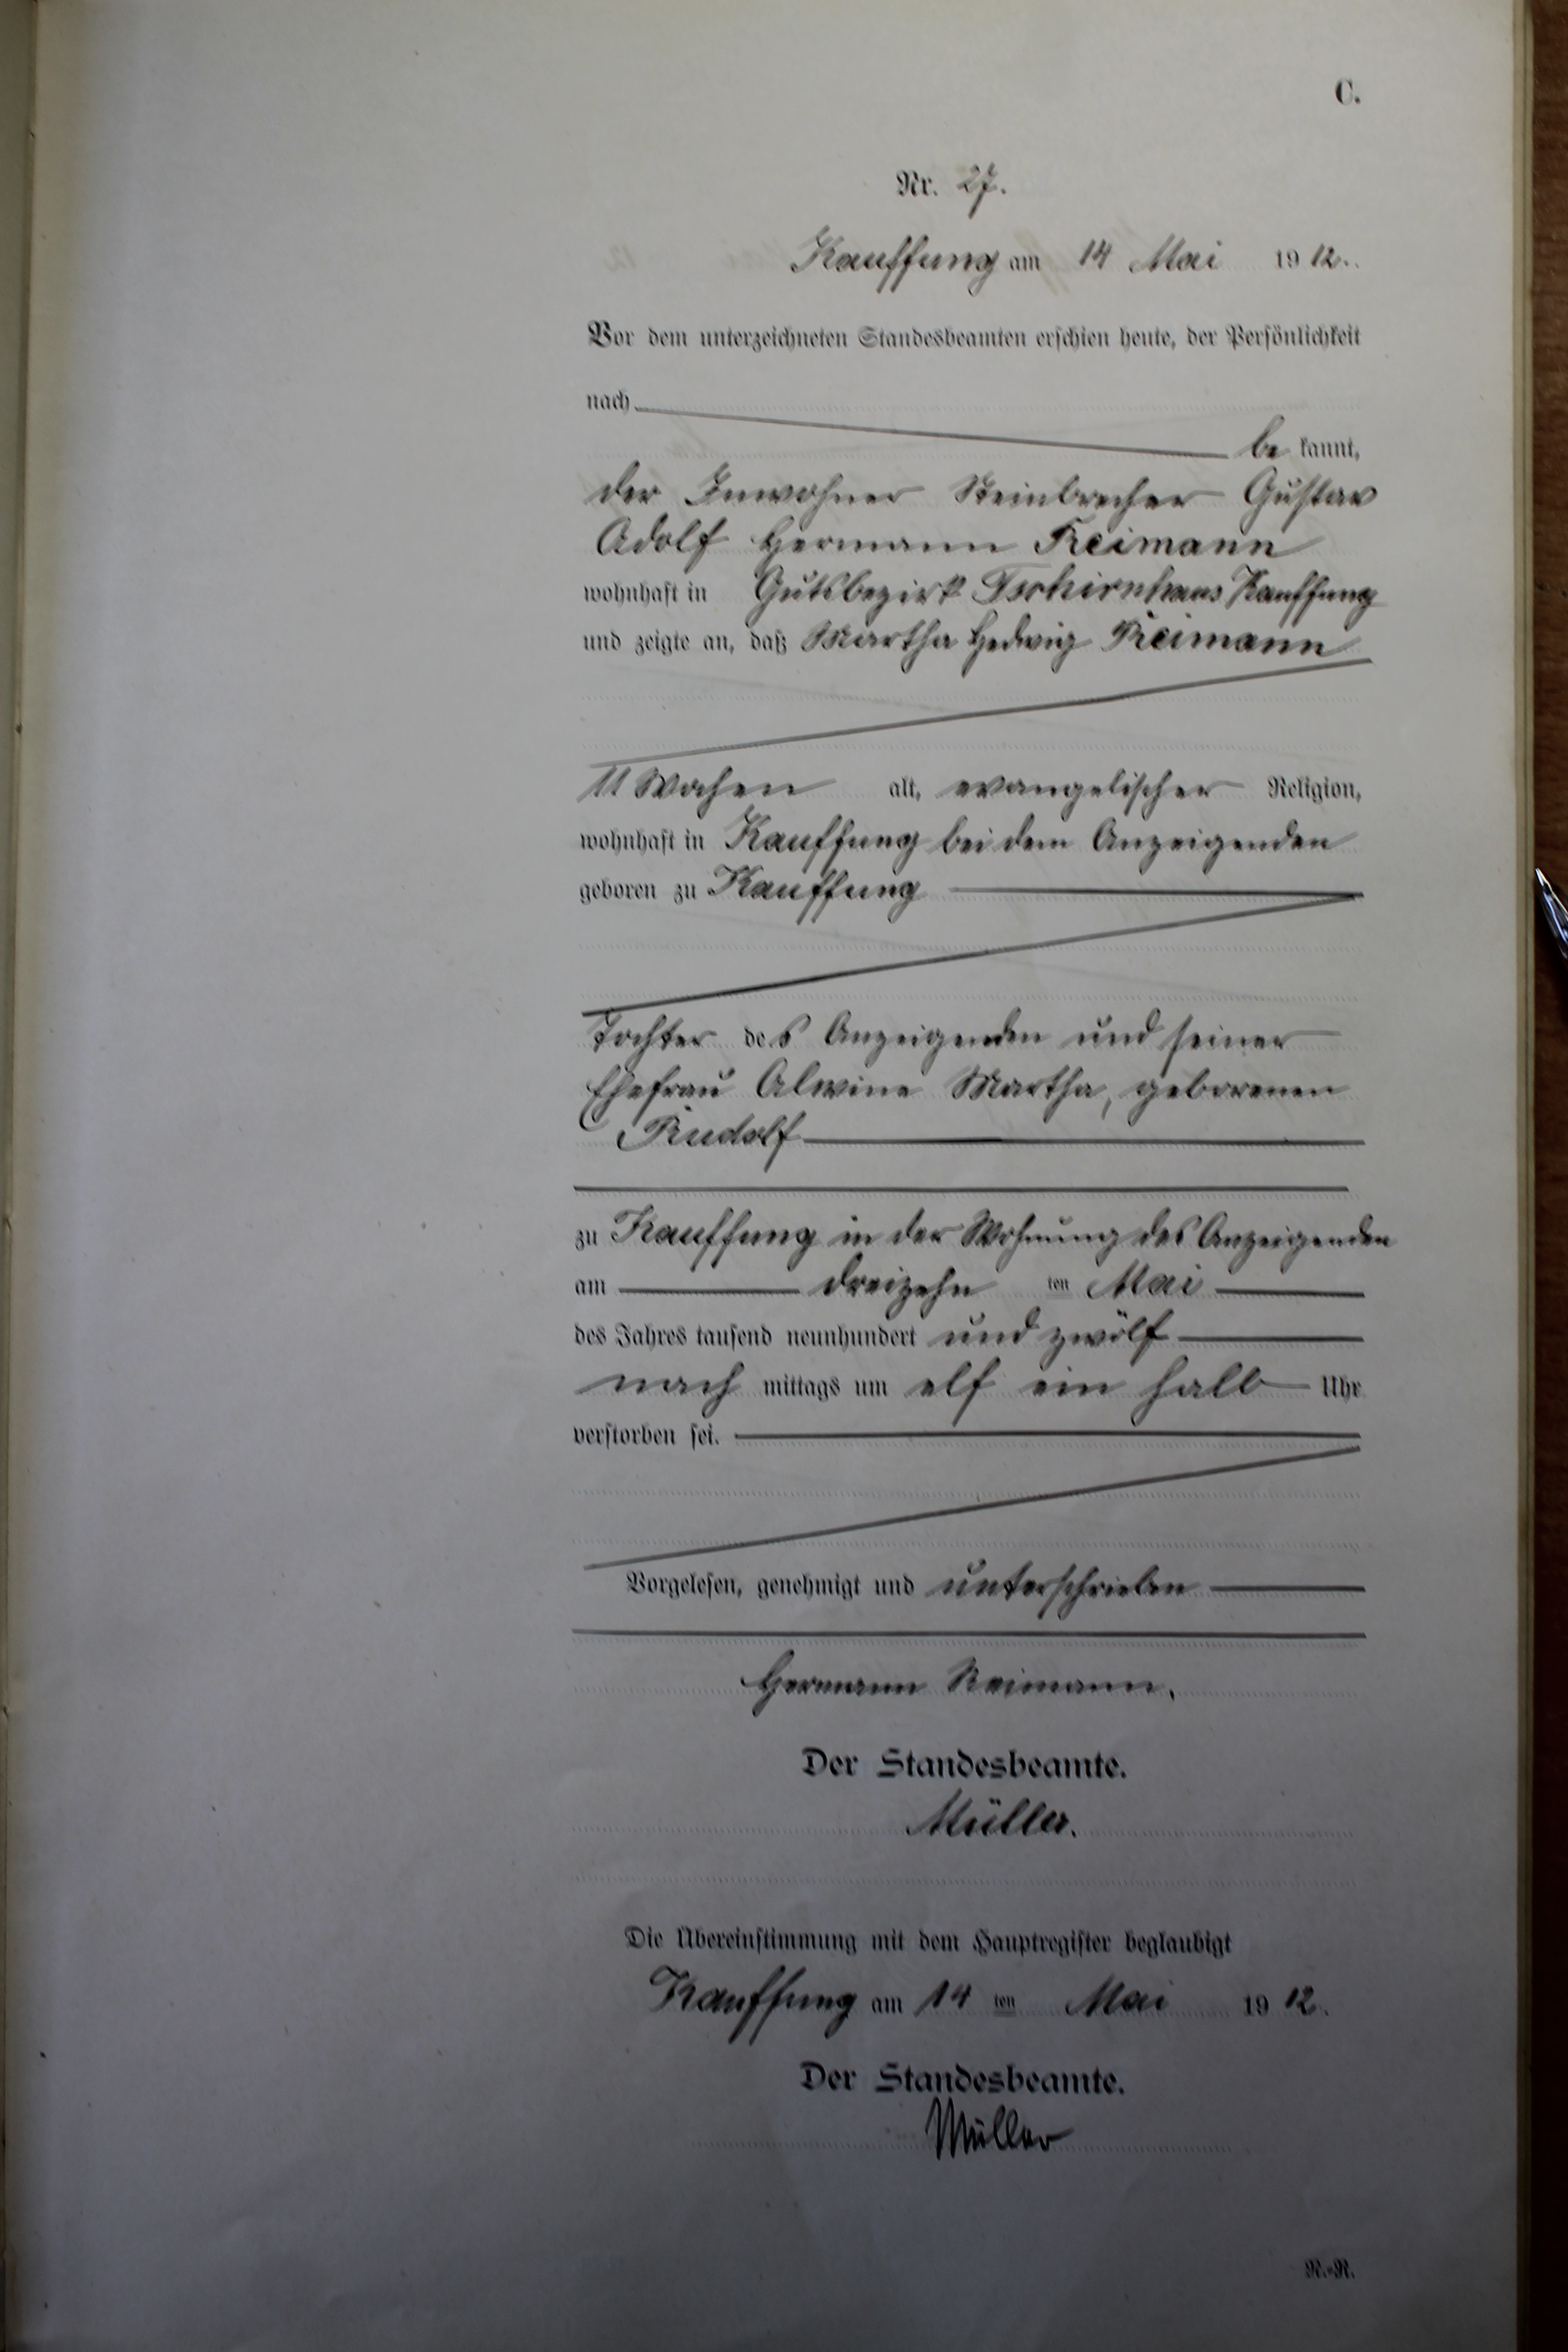 C.
Nr. 27.
Kauffung am 14 Mai 1912.
Vor dem unterzeichneten Standesbeamten erschien heute, der Persönlichkeit
nach
be kannt,
der Inwohner Steinbrecher Gustav
Adolf Hermann Reimann
wohnhaft in Gutsbezirk Tschirnhaus Kauffung
und zeigte an, daß Martha Hedwig Reimann
11 Wochen alt, evangelischer Religion,
wohnhaft in Kauffung bei dem Anzeigenden
geboren zu Kauffung
Tochter des Anzeigenden und seiner
Ehefrau Alwine Martha, geborenen
Rudolf
zu Kauffung in der Wohnung des Anzeigenden
am dreizehn ten Mai
des Jahres tausend neunhundert und zwölf
nach mittags um elf ein halb Uhr
verstorben sei.
Vorgelesen, genehmigt und unterschrieben
Hermann Reimann.
Der Standesbeamte.
Müller.
Die Übereinstimmung mit dem Hauptregister beglaubigt
Kauffung am 14 ten Mai 1912.
Der Standesbeamte.
Müller
R.-R.